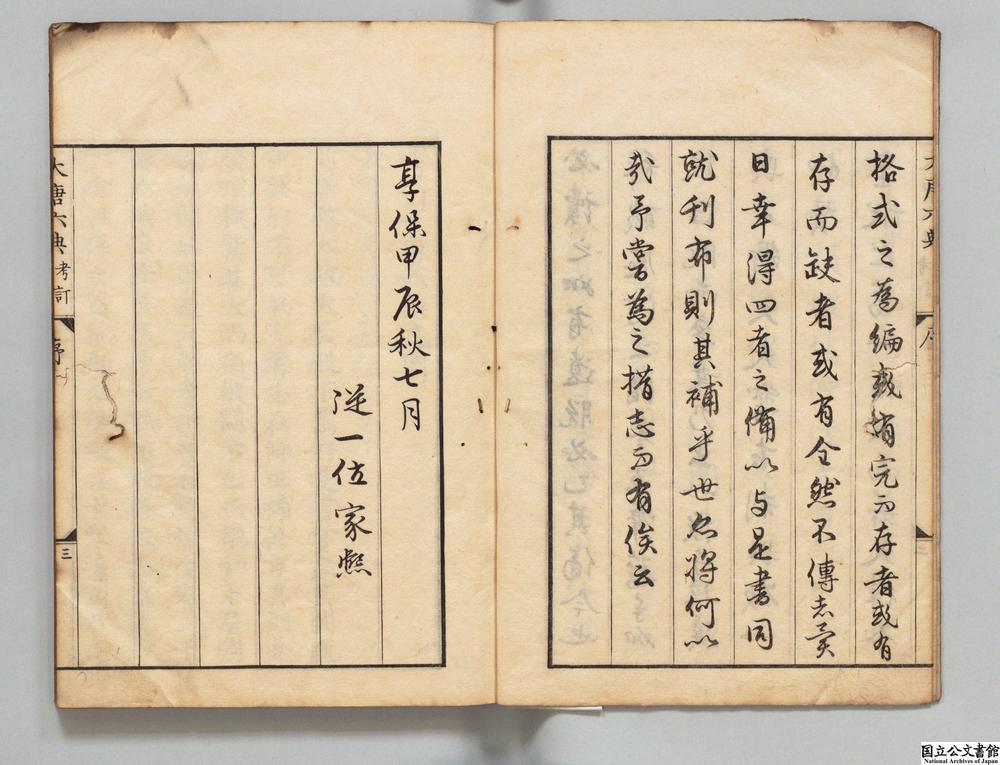 格式之為編或猶完而存者或有
存而缺者或有全然不傳者異
日幸得四者之備以与是書同
就刊布則其補乎世也將何以
哉予嘗為之措志而有俟云
享保甲辰秋七月
從一位家熈
大唐六典考訂
序
三
国立公文書館
National Archives of Japan